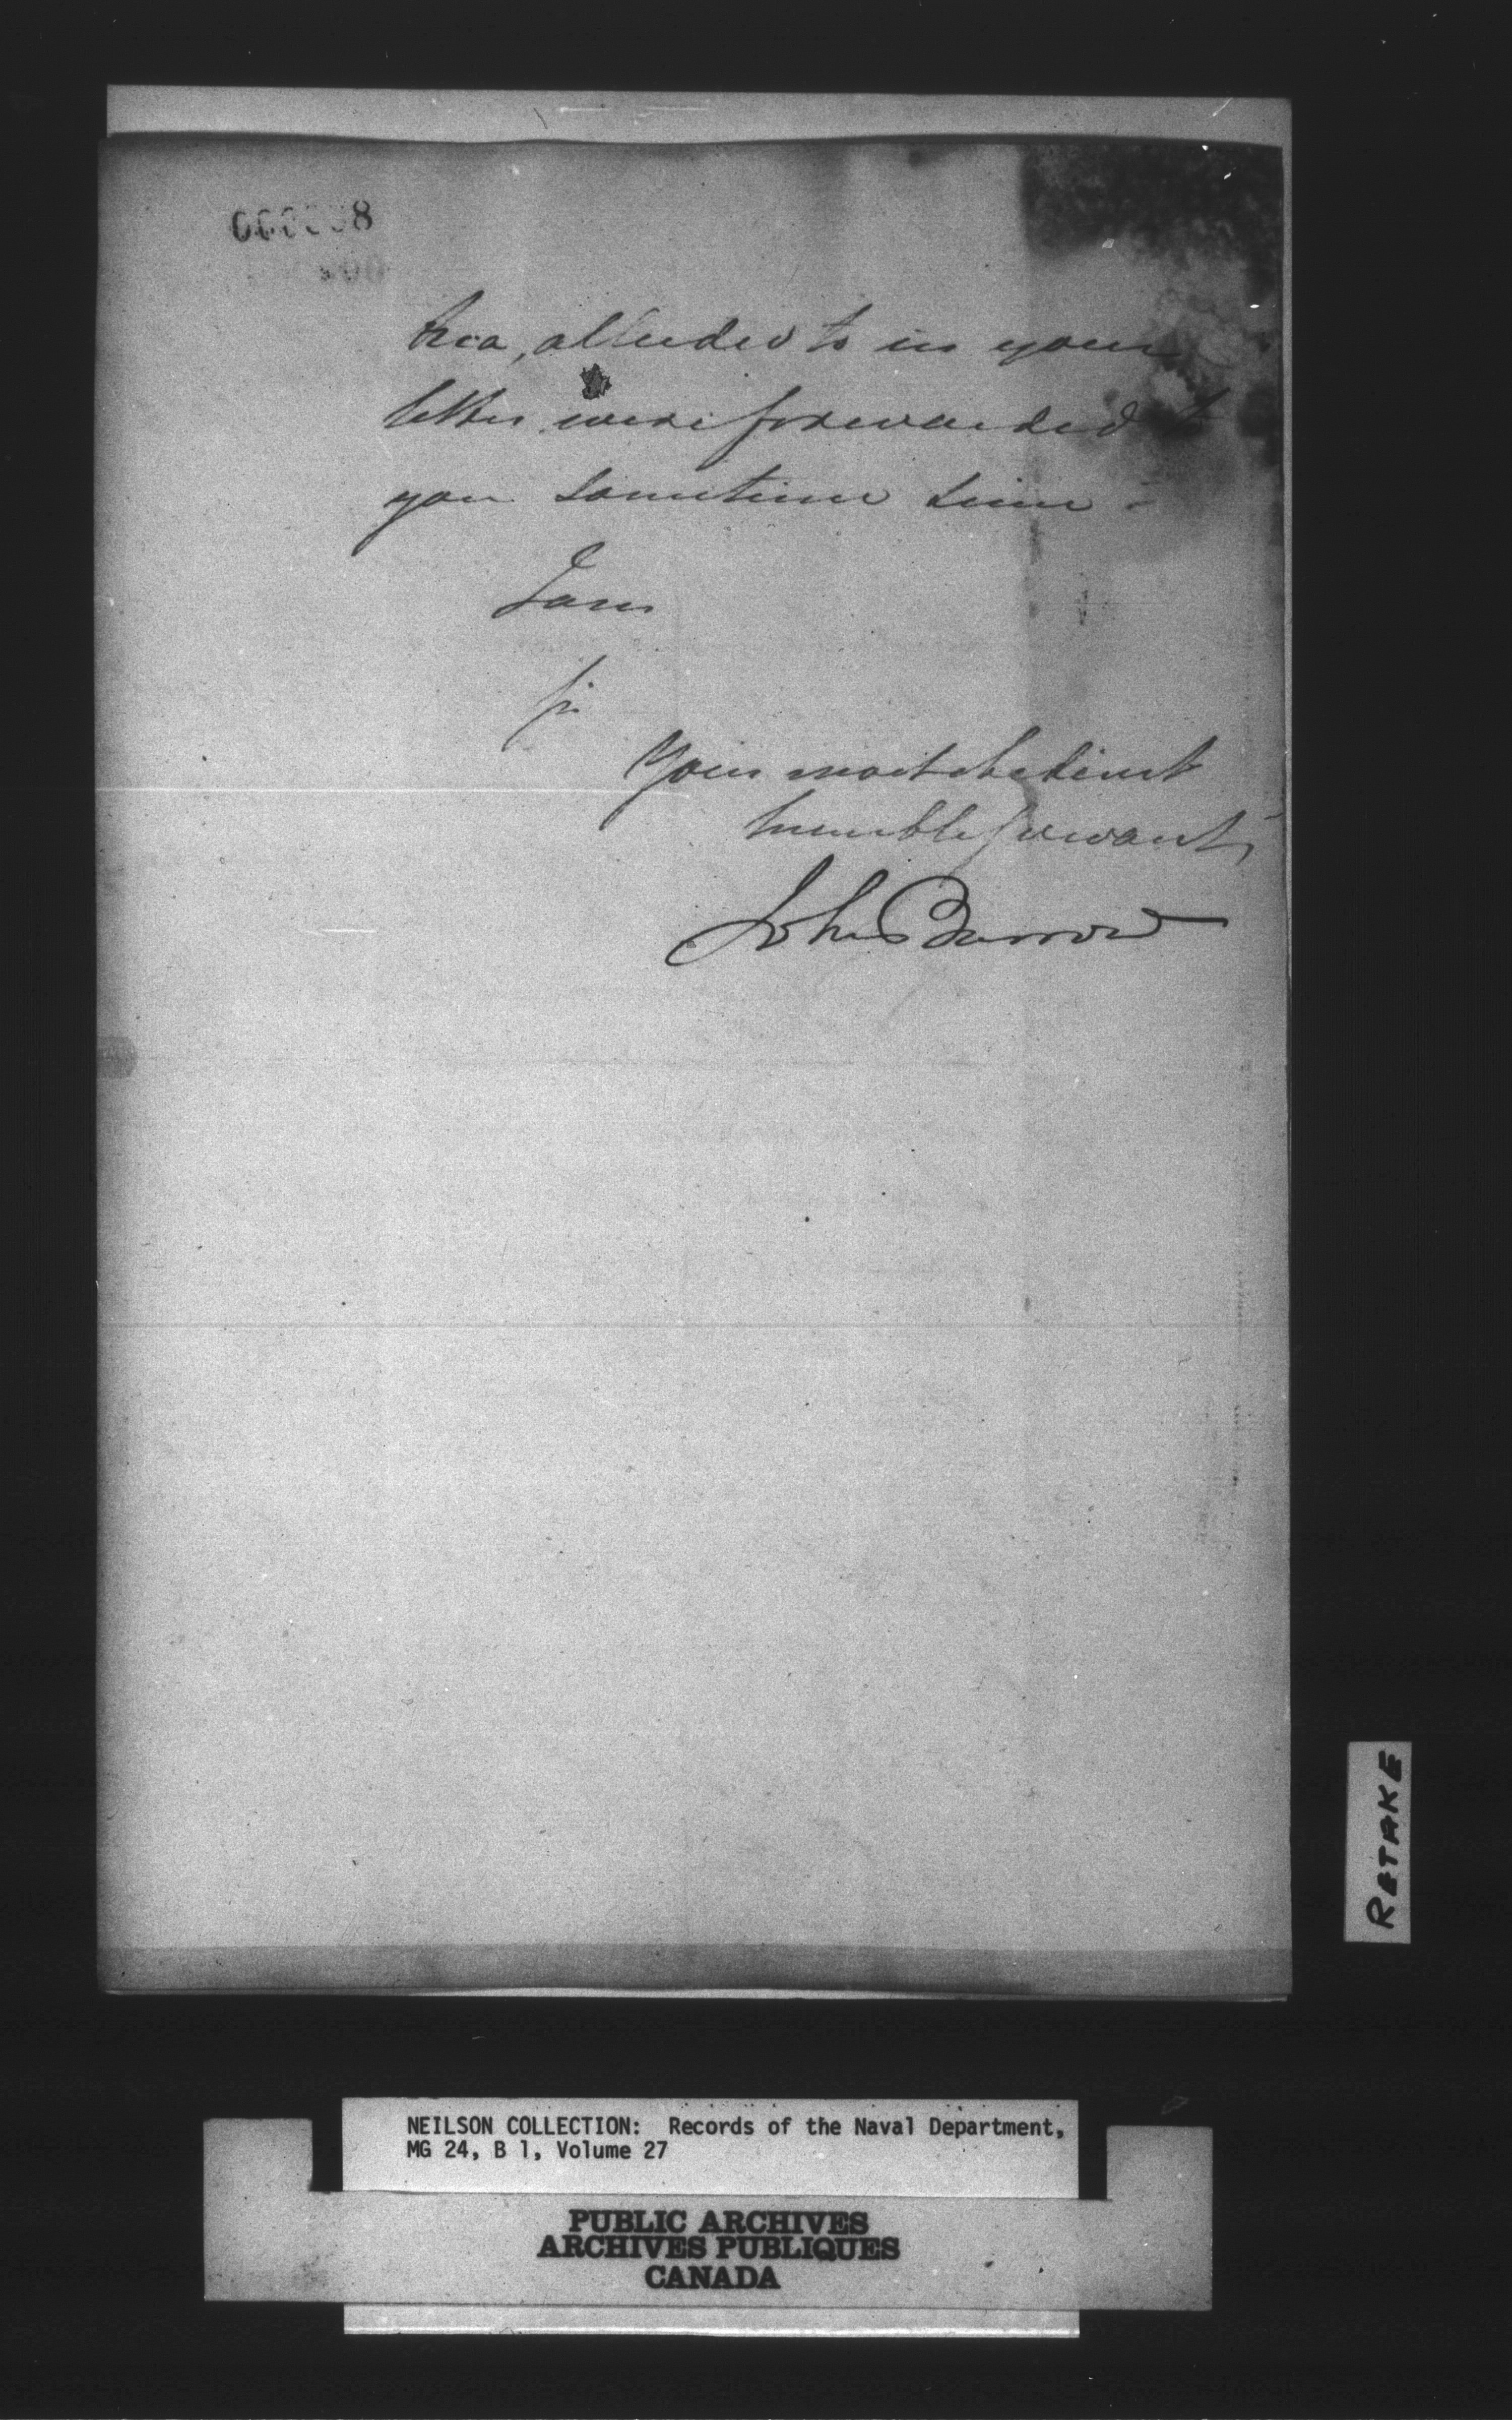 alluded to in your
letter were forwarded to
you sometime since -
I am
Sir
Your most obedient
humble servant,
John Barrow
RETAKE
NEILSON COLLECTION: Records of the Naval Department,
MG 24, B 1, Volume 27
PUBLIC ARCHIVES
ARCHIVES PUBLIQUES
CANADA